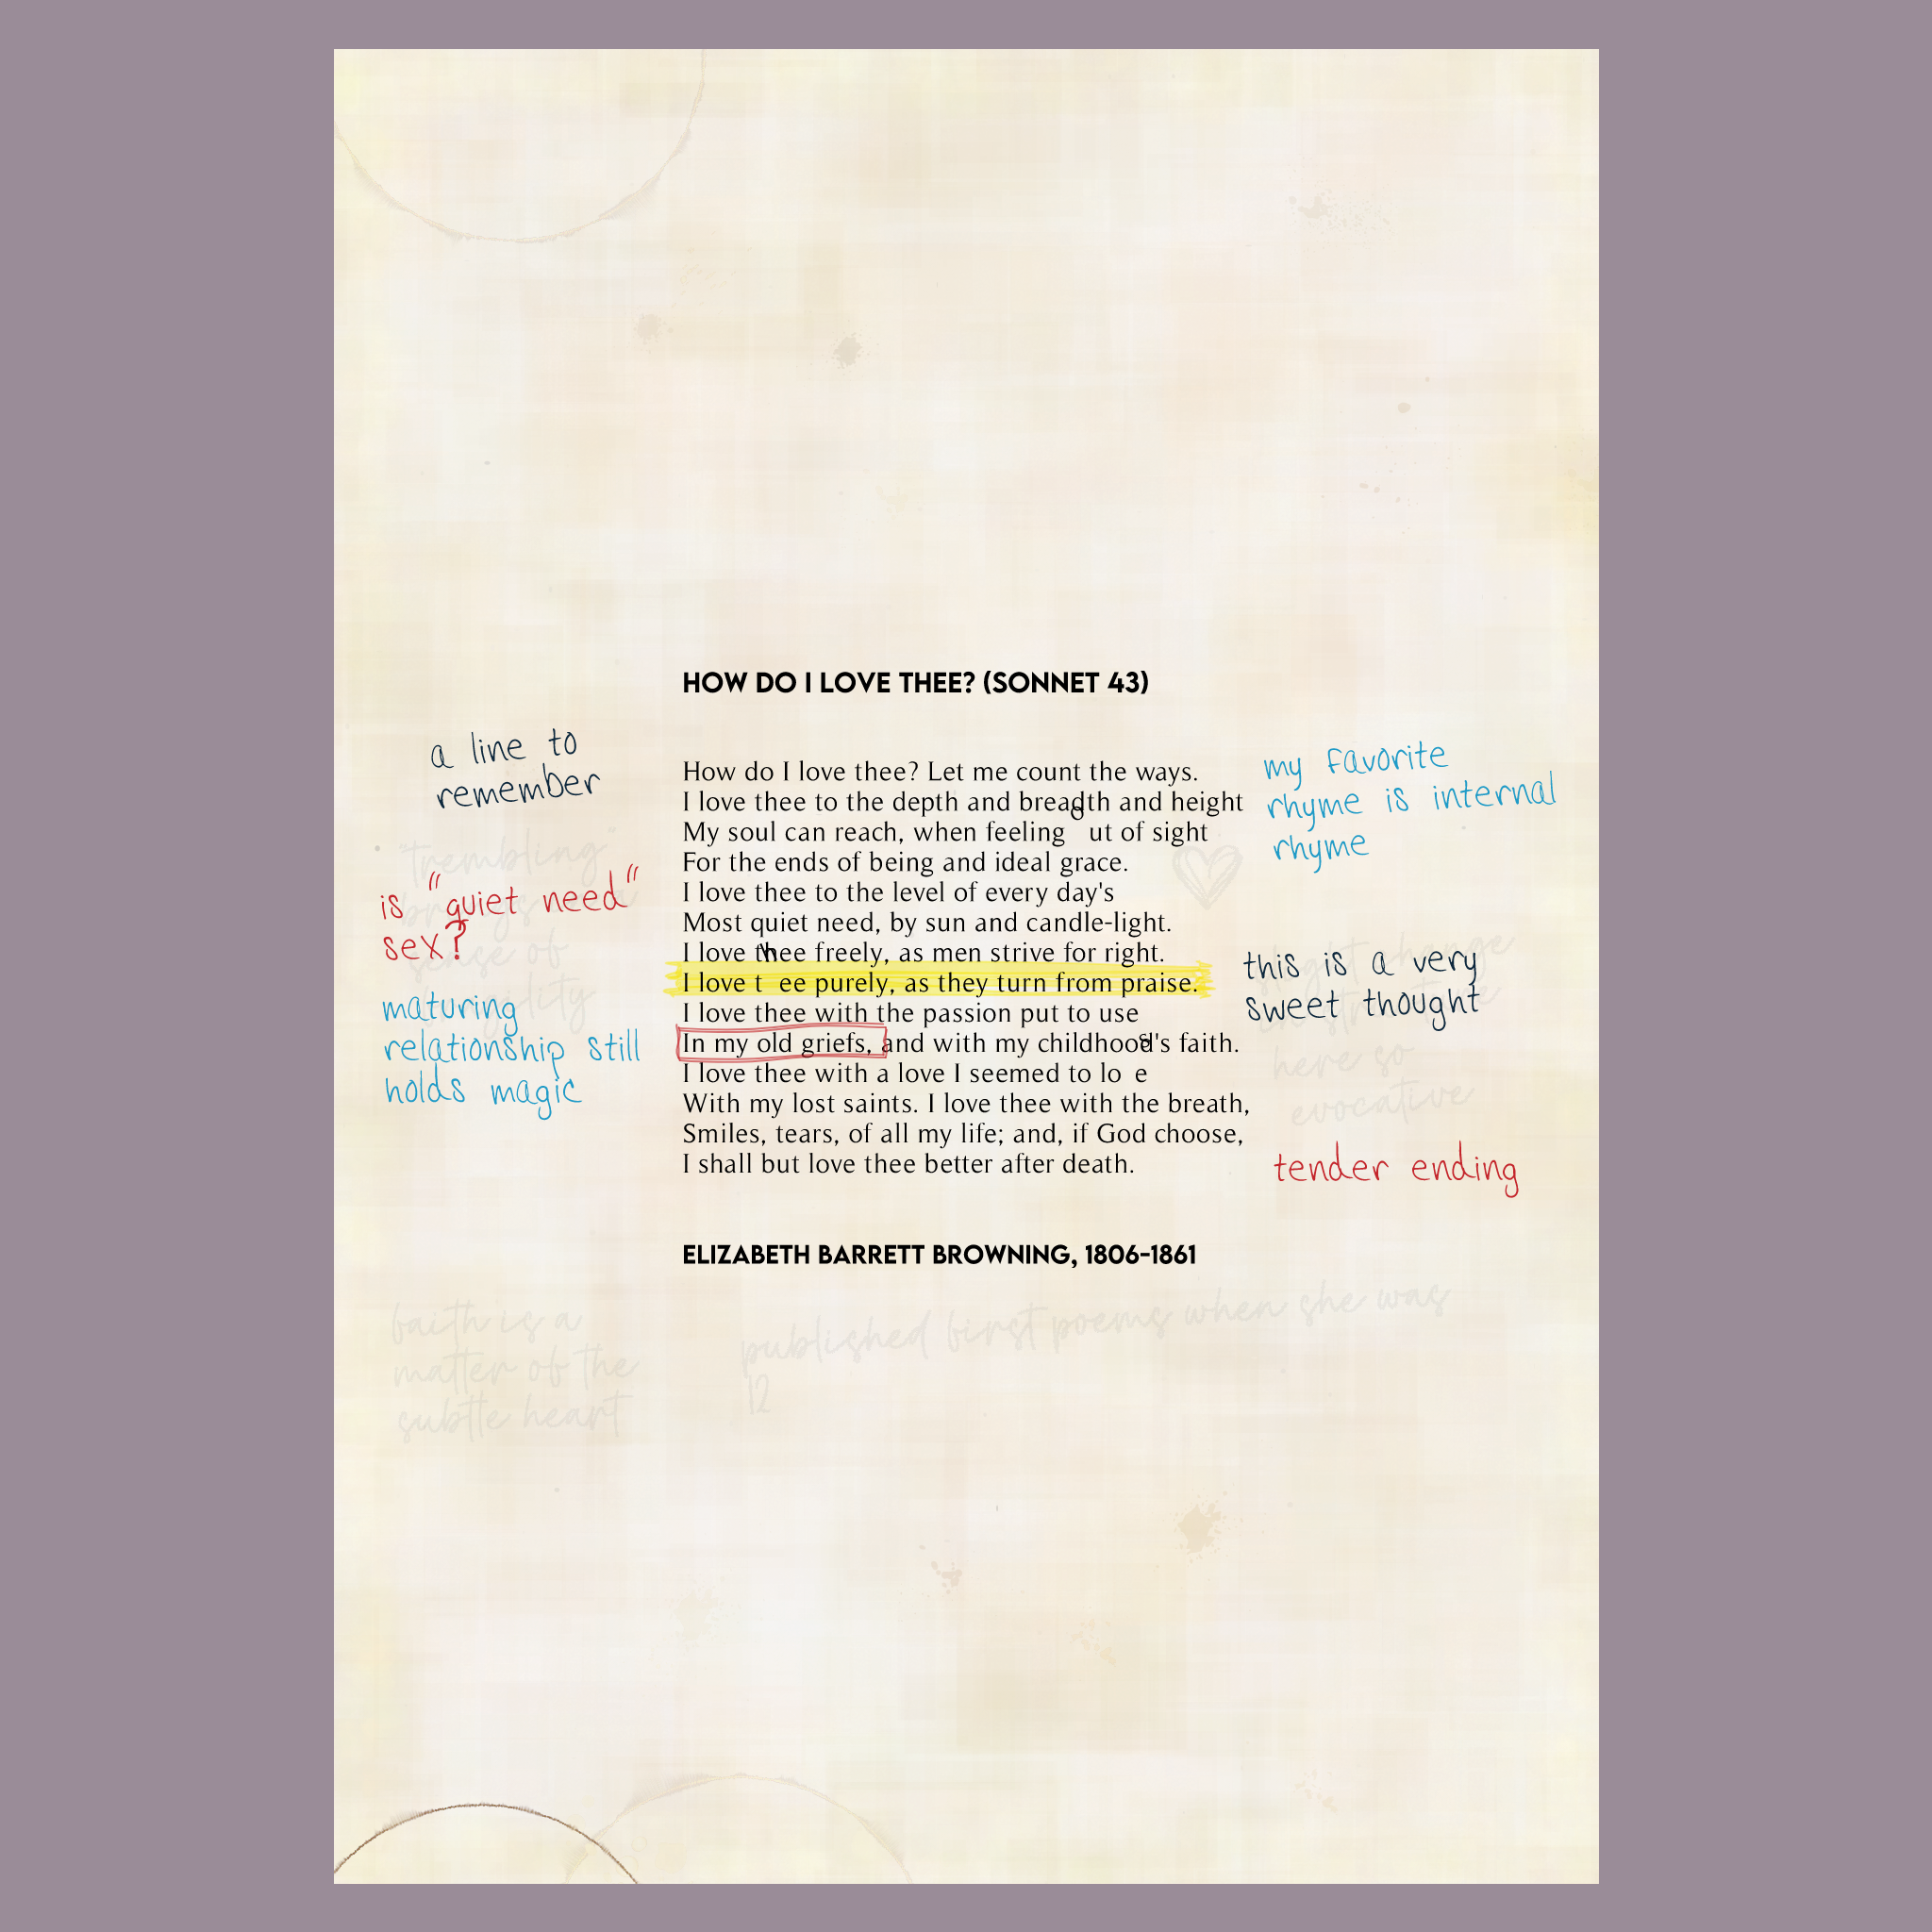 HOW DO I LOVE THEE? (SONNET 43)
a line to
remember
my favorite
rhyme is internal
rhyme
How do I love thee? Let me count the ways.
I love thee to the depth and breadth and height
My soul can reach, when feeling out of sight
For the ends of being and ideal grace.
I love thee to the level of every day's
Most quiet need, by sun and candle-light.
I love thee freely, as men strive for right.
I love thee purely, as they turn from praise.
I love thee with the passion put to use
In my old griefs, and with my childhood's faith.
I love thee with a love I seemed to lose
With my lost saints. I love thee with the breath,
Smiles, tears, of all my life; and, if God choose,
I shall but love thee better after death.
"trembling"
sense of
is "quiet need"
sex?
maturing
relationship still
holds magic
this is a very
sweet thought
change
here so
evocative
tender ending
ELIZABETH BARRETT BROWNING, 1806-1861
faith is a
matter of the
subtle heart
published first poems when she was
12